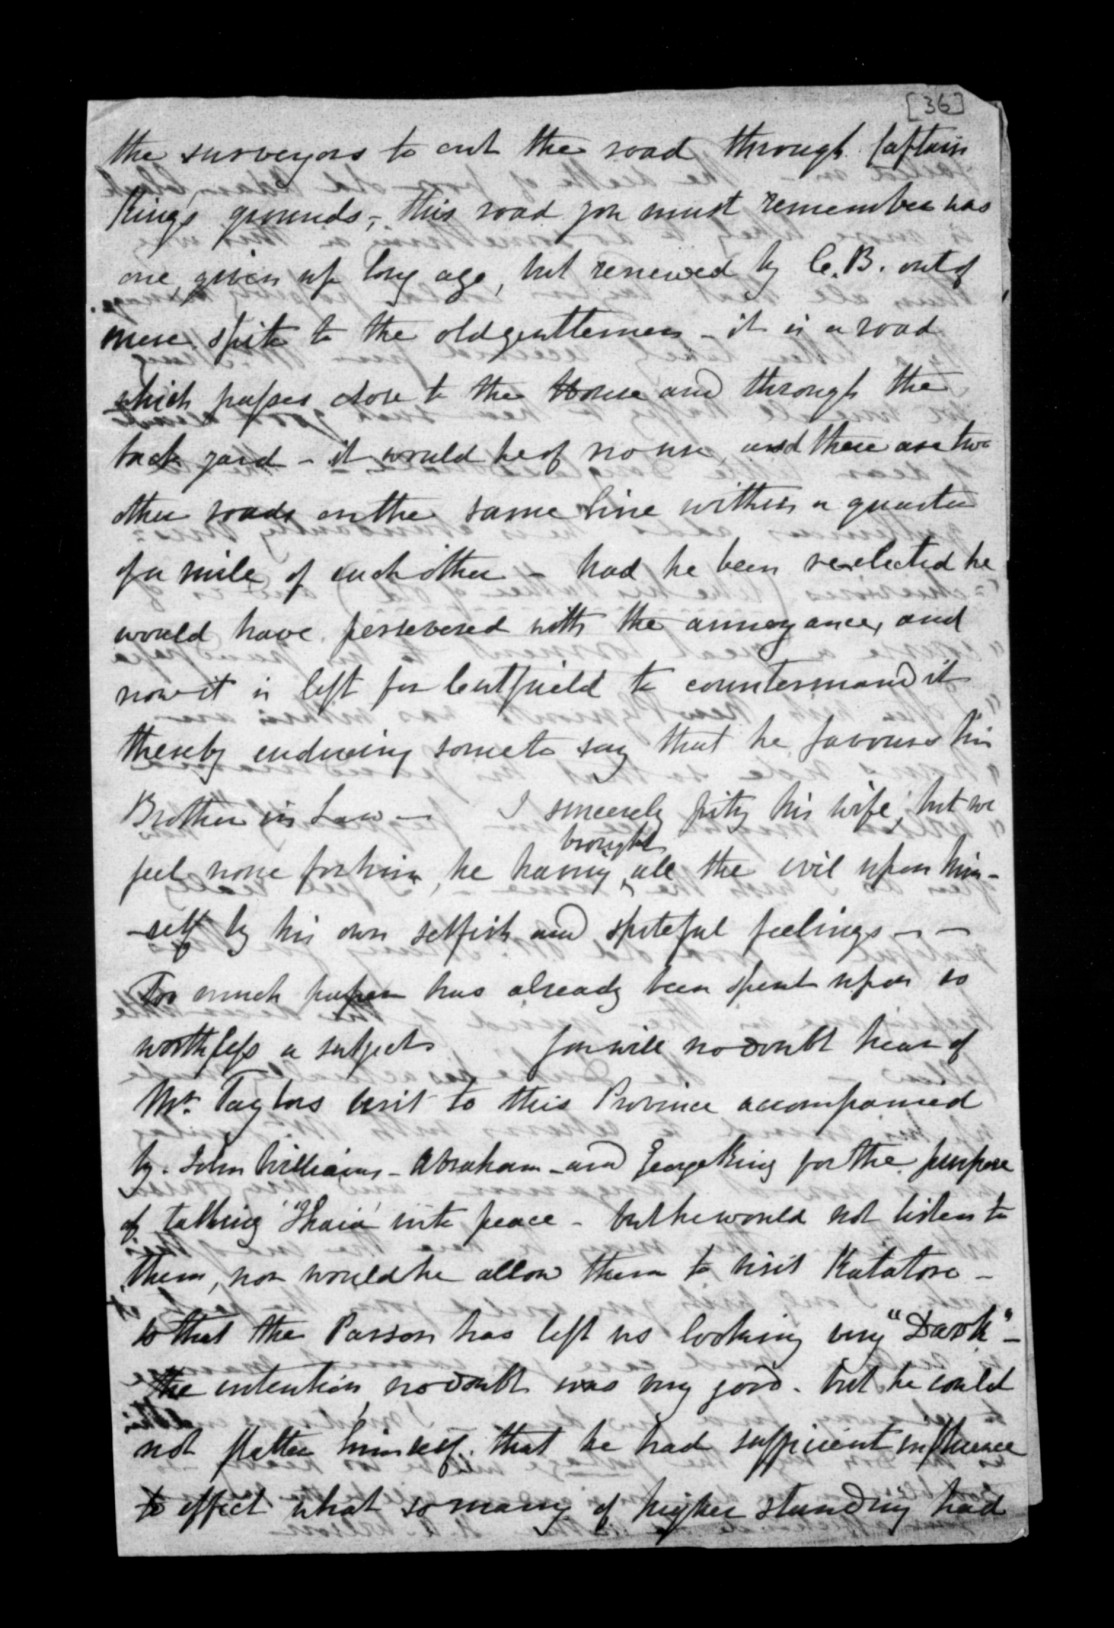 [36]
the surveyors to cut the road through Captain
Kings grounds, this road you must remember was
one, given up long ago, but renewed by C.B. out of
mere spite to the old gentlemen - it is a road
which passes close to the House and through the
back yard - it would be of no use and there are two
other roads on the same line within a quarter
of a mile of each other - had he been reelected he
would have persevered with the annoyance, and
now it is left for Cutfield to countermand it
thereby enducing some to say that he favours his
Brother in Law - I sincerely pity his wife, but we
feel none for him, he having brought all the evil upon him-
-self by his own selfish and spiteful feelings - -
Too much paper has already been spent upon so
worthless a subject You will no doubt hear of
Mr. Taylors visit to this Province accompanied
by John Williams - Abraham - and George King for the purpose
of talking "Ihaia" into peace - but he would not listen to
them, nor would he allow them to visit Katatore -
so that the Parson has left us looking very "Dark" -
the intention no doubt was very good - but he could
not flatter himself that he had sufficient influence
to effect what so many of higher standing had